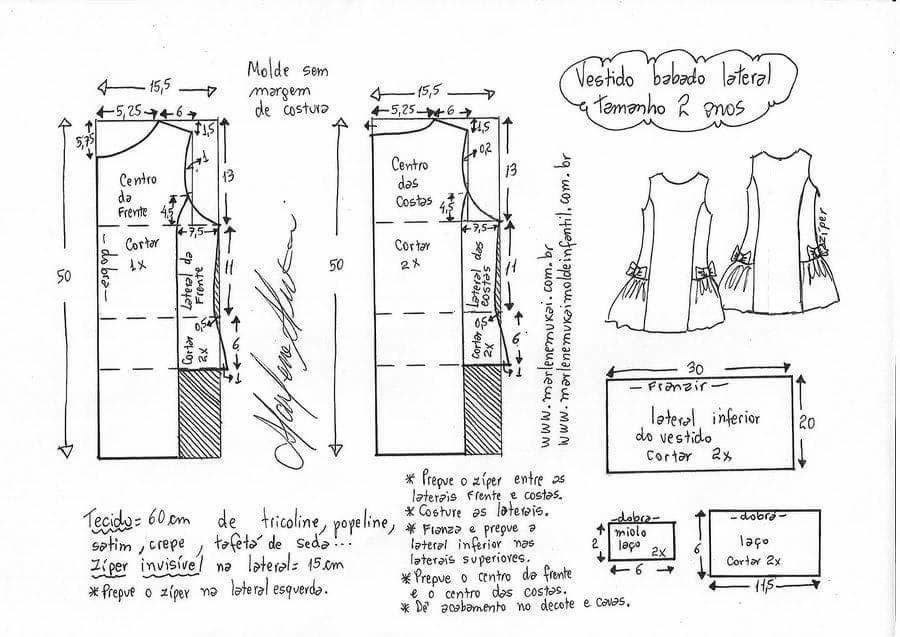 Vestido babado lateral
tamanho 2 anos
Molde sem
margem
de costura
15,5
5,25
6
5,75
1,5
1
13
Centro
da
Frente
4,5
Cortar
1x
-dobra-
7,5
Lateral da
Frente
11
50
0,5
Cortar
2x
6
1
15,5
5,25
6
1,5
0,2
13
Centro
das
Costas
4,5
Cortar
2x
7,5
Lateral das
costas
11
50
0,5
Cortar
2x
6
1
www.marlenemukai.com.br
www.marlenemukaimoldeinfantil.com.br
zíper
30
- Franzir -
lateral inferior
do vestido
cortar 2x
20
-dobra-
miolo
laço
2x
2
6
-dobra-
laço
Cortar 2x
6
11,5
Tecido= 60cm de tricoline, popeline,
satim, crepe, tafetá de seda...
Zíper invisível na lateral= 15cm
*Prepue o zíper na lateral esquerda.
* Prepue o zíper entre as
laterais frente e costas.
* Costure as laterais.
* Franza e prepue a
lateral inferior nas
laterais superiores.
* Prepue o centro da frente
e o centro das costas.
* Dê acabamento no decote e cavas.